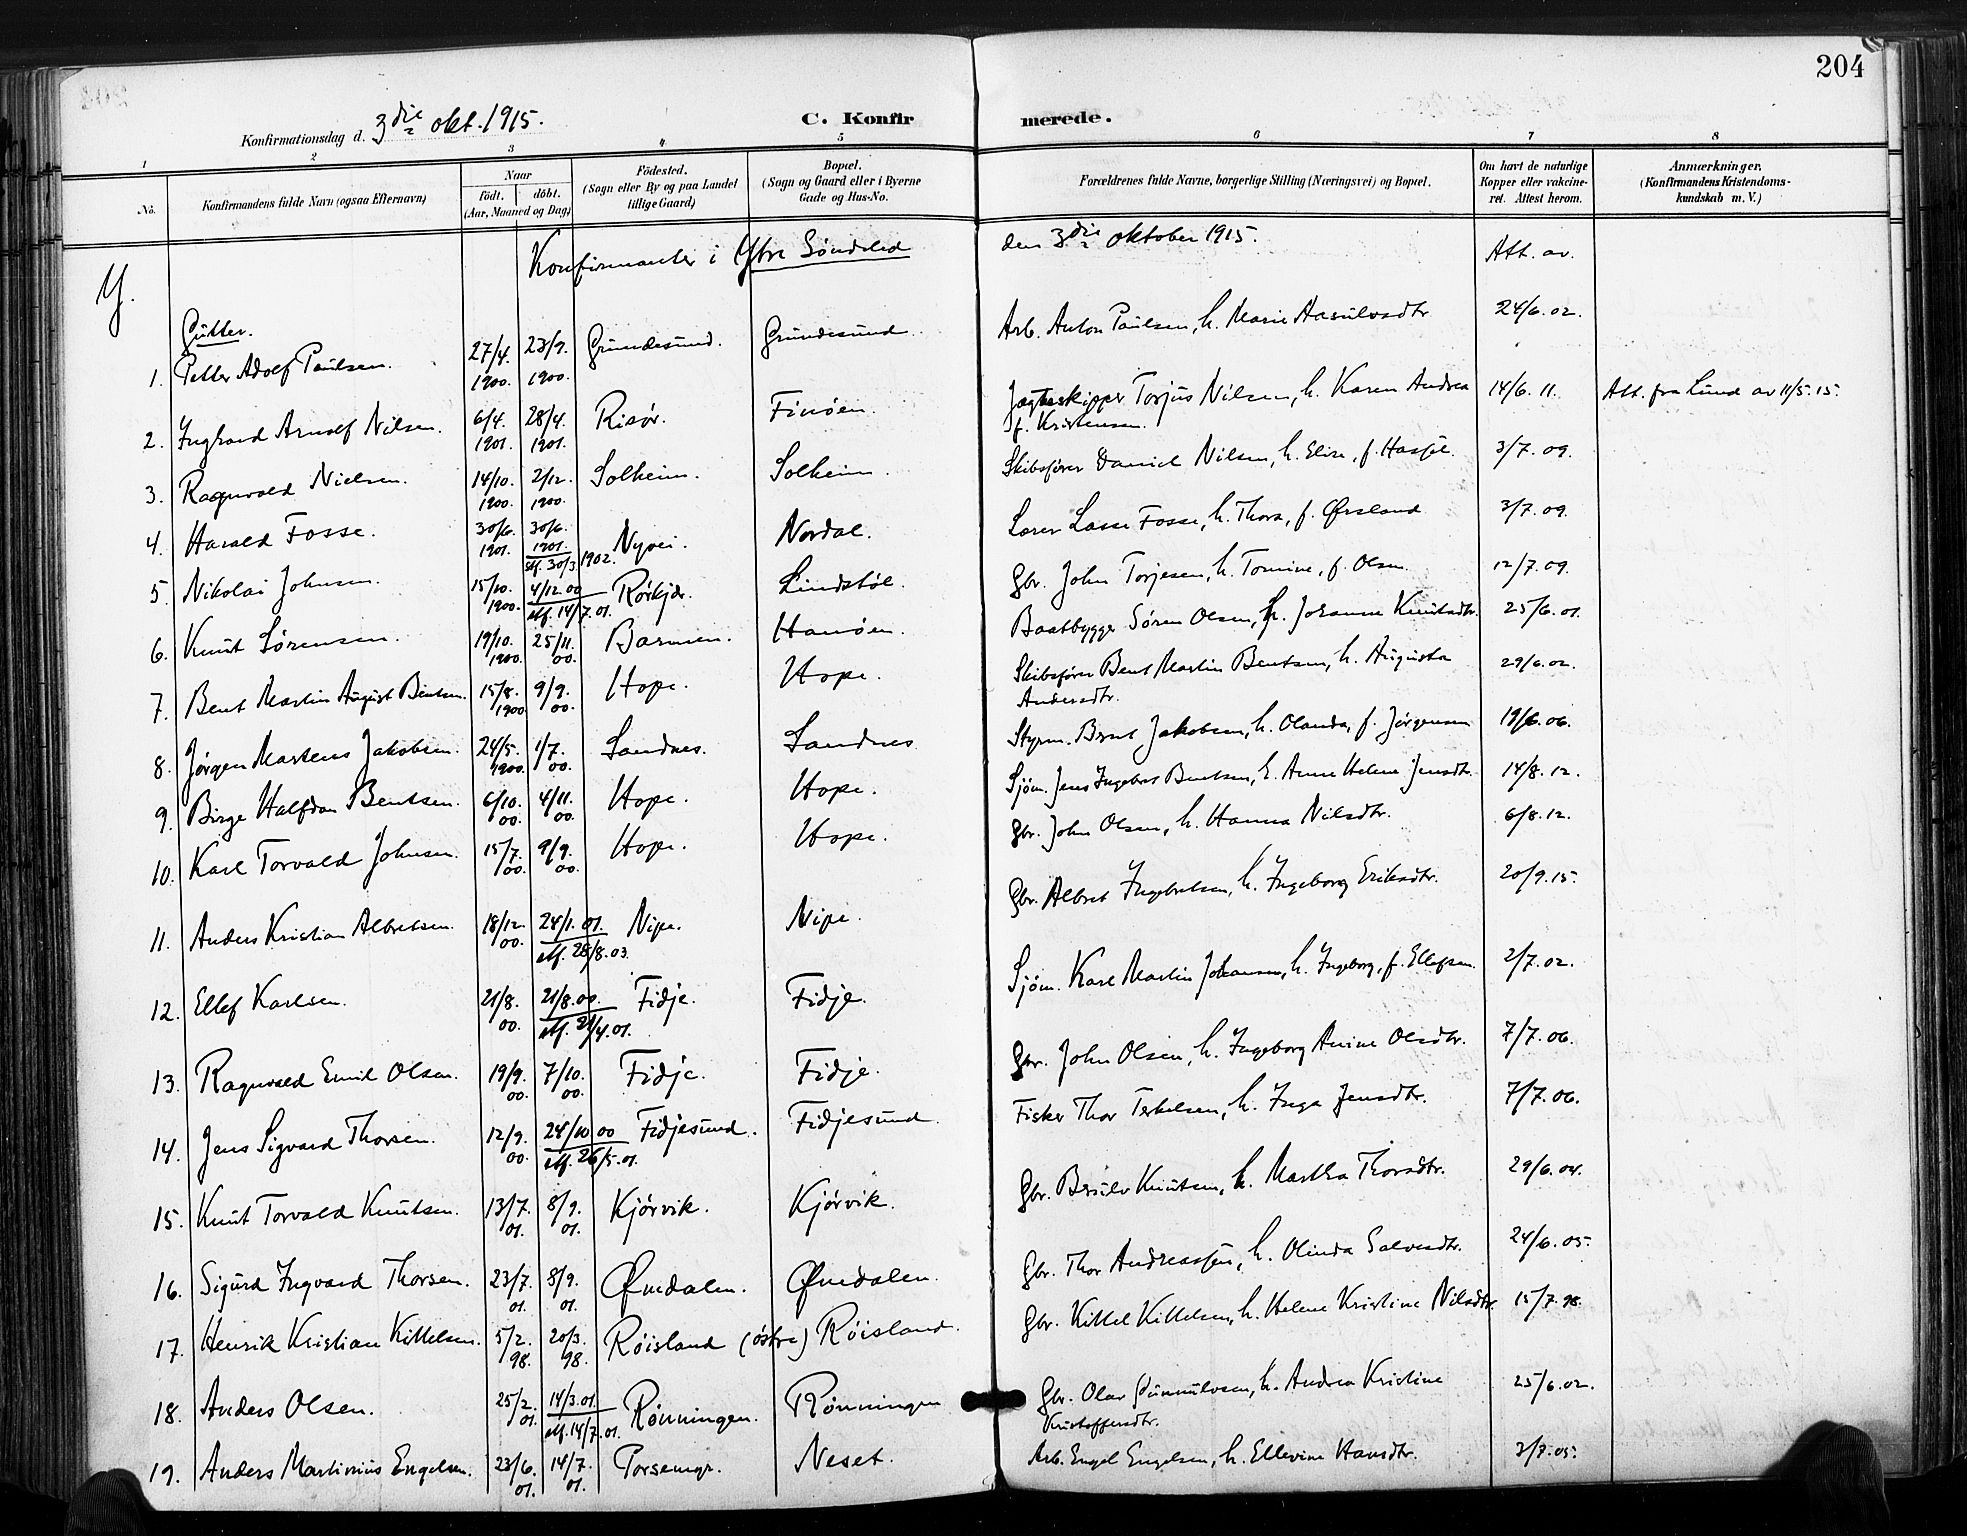 204
Konfirmationsdag d. 3die okt. 1915.
C. Konfirmerede.
1 2 3 4 5 6 7 8
No.
Konfirmandens fulde Navn (ogsaa Efternavn)
Naar
födt. döbt.
(Aar, Maaned og Dag)
Födested.
(Sogn eller By og paa Landet
tillige Gaard)
Bopæl.
(Sogn og Gaard eller i Byerne
Gade og Hus-No.
Forældrenes fulde Navne, borgerlige Stilling (Næringsvei) og Bopæl.
Om havt de naturlige
Kopper eller vakcine-
ret. Attest herom.
Anmærkninger.
(Konfirmandens Kristendoms-
kundskab m. V.)
Konfirmanter i Ytre Søndeled den 3die oktober 1915.
Att. av.
Y.
Gutter.
1. Petter Adolf Paulsen. 27/4. 1900. 23/9. 1900. Grundesund. Grundesund. Arb. Anton Paulsen, h. Marie Aasulvsdtr 24/6.02.
2. Arnolf Nilsen. 6/4. 1901. 28/4. 1901. Risør. Finøen. Jagteskipper Torjus Nilsen, h. Karen Andrea
f. Kristensen. 14/6. 11. Att. fra Lund av 11/5.15.
3. Ragnvald Nielsen. 14/10. 1900. 2/12. 1900. Solheim. Solheim. Skibsfører Daniel Nilsen, h. Elise, f. 3/7. 09.
4. Harald Fosse. 30/6. 1901. 30/6. 1901. stf. 30/3 1902. Nyvei. Nordal. Lærer Lasse Fosse, h. Thora, f. Ørsland 3/7. 09.
5. Nikolai Johnsen. 15/10. 1900. 4/12.00 stf. 14/7.01. Rørkjær. Lindstøl. Gbr. John Torjesen, h. Tomine, f. Olsen. 12/7.09.
6. Knut Sørensen. 19/10. 1900. 25/11. 00. Barmen. Hanøen. Baatbygger Søren Olsen, h. Johanne Knutsdtr. 25/6.01.
7. Bent Martin August Bentsen. 15/8. 1900. 9/9. 00. Hope. Hope. Skibsfører Bent Martin Bentsen, h. Augusta
Andersdtr. 29/6.02.
8. Jørgen Martens Jakobsen. 24/5. 1900. 1/7. 00. Sandnes. Sandnes Styrm. Bernt Jakobsen, h. Olanda, f. Jørgensen 19/6.06.
9. Birge Halfdan Bentsen. 6/10. 00. 4/11. 00. Hope. Hope. Sjøm. Jens Ingebret Bentsen, h. Anne Helene Jensdtr. 14/8.12.
10. Karl Torvald Johnsen. 15/7. 00. 9/9. 00. Hope. Hope. Gbr. John Olsen, h. Hanna Nilsdtr. 6/8.12.
11. Anders Kristian Albretsen. 18/12. 00. 24/1.01. stf. 25/8.03. Nipe. Nipe. Gbr. Albret Ingebretsen, h. Ingeborg Eriksdtr. 20/9.15.
12. Ellef Karlsen. 21/8. 00. 21/8.00. stf. 21/4.01. Fidje. Fidje. Sjøm. Karl Martin Johansen, h. Ingeborg, f. Ellefsen. 2/7.02.
13. Ragnvald Emil Olsen. 19/9. 00. 7/10. 00. Fidje. Fidje. Gbr. John Olsen, h. Ingeborg Anine Olsdtr. 7/7.06.
14. Jens Sigvard Thorsen. 12/9. 00. 24/10 00 stf. 26/5.01. Fidjesund. Fidjesund. Fisker Thor Terkelsen, h. Inga Jensdtr. 7/7.06.
15. Knut Torvald Knutsen. 13/7. 01. 8/9. 01. Kjørvik. Kjørvik. Gbr. Besulv Knutsen, h. Martha Thorsdtr. 29/6.04.
16. Sigurd Ingvard Thorsen. 23/7. 01. 8/9. 01. Øvedalen. Øvedalen. Gbr. Thor Andreassen, h. Olinda Salvesdtr. 24/6.05.
17. Henrik Kristian Kittelsen. 5/2. 98. 20/3. 98. Røisland (østre) Røisland. Gbr. Kittel Kittelsen, h. Helene Kristine Nilsdtr. 15/7.98.
18. Anders Olsen. 25/2. 01. 14/3.01. stf. 14/7.01. Rønningen. Rønningen Gbr. Olav Gunnulvsen, h. Andrea Kristine
Kristoffersdtr. 25/6.02.
19. Anders Martinius Engelsen. 23/6. 01. 14/7. 01. Porsemyr. Neset. Arb. Engel Engelsen, h. Ellevine Hansdtr. 3/7.05.